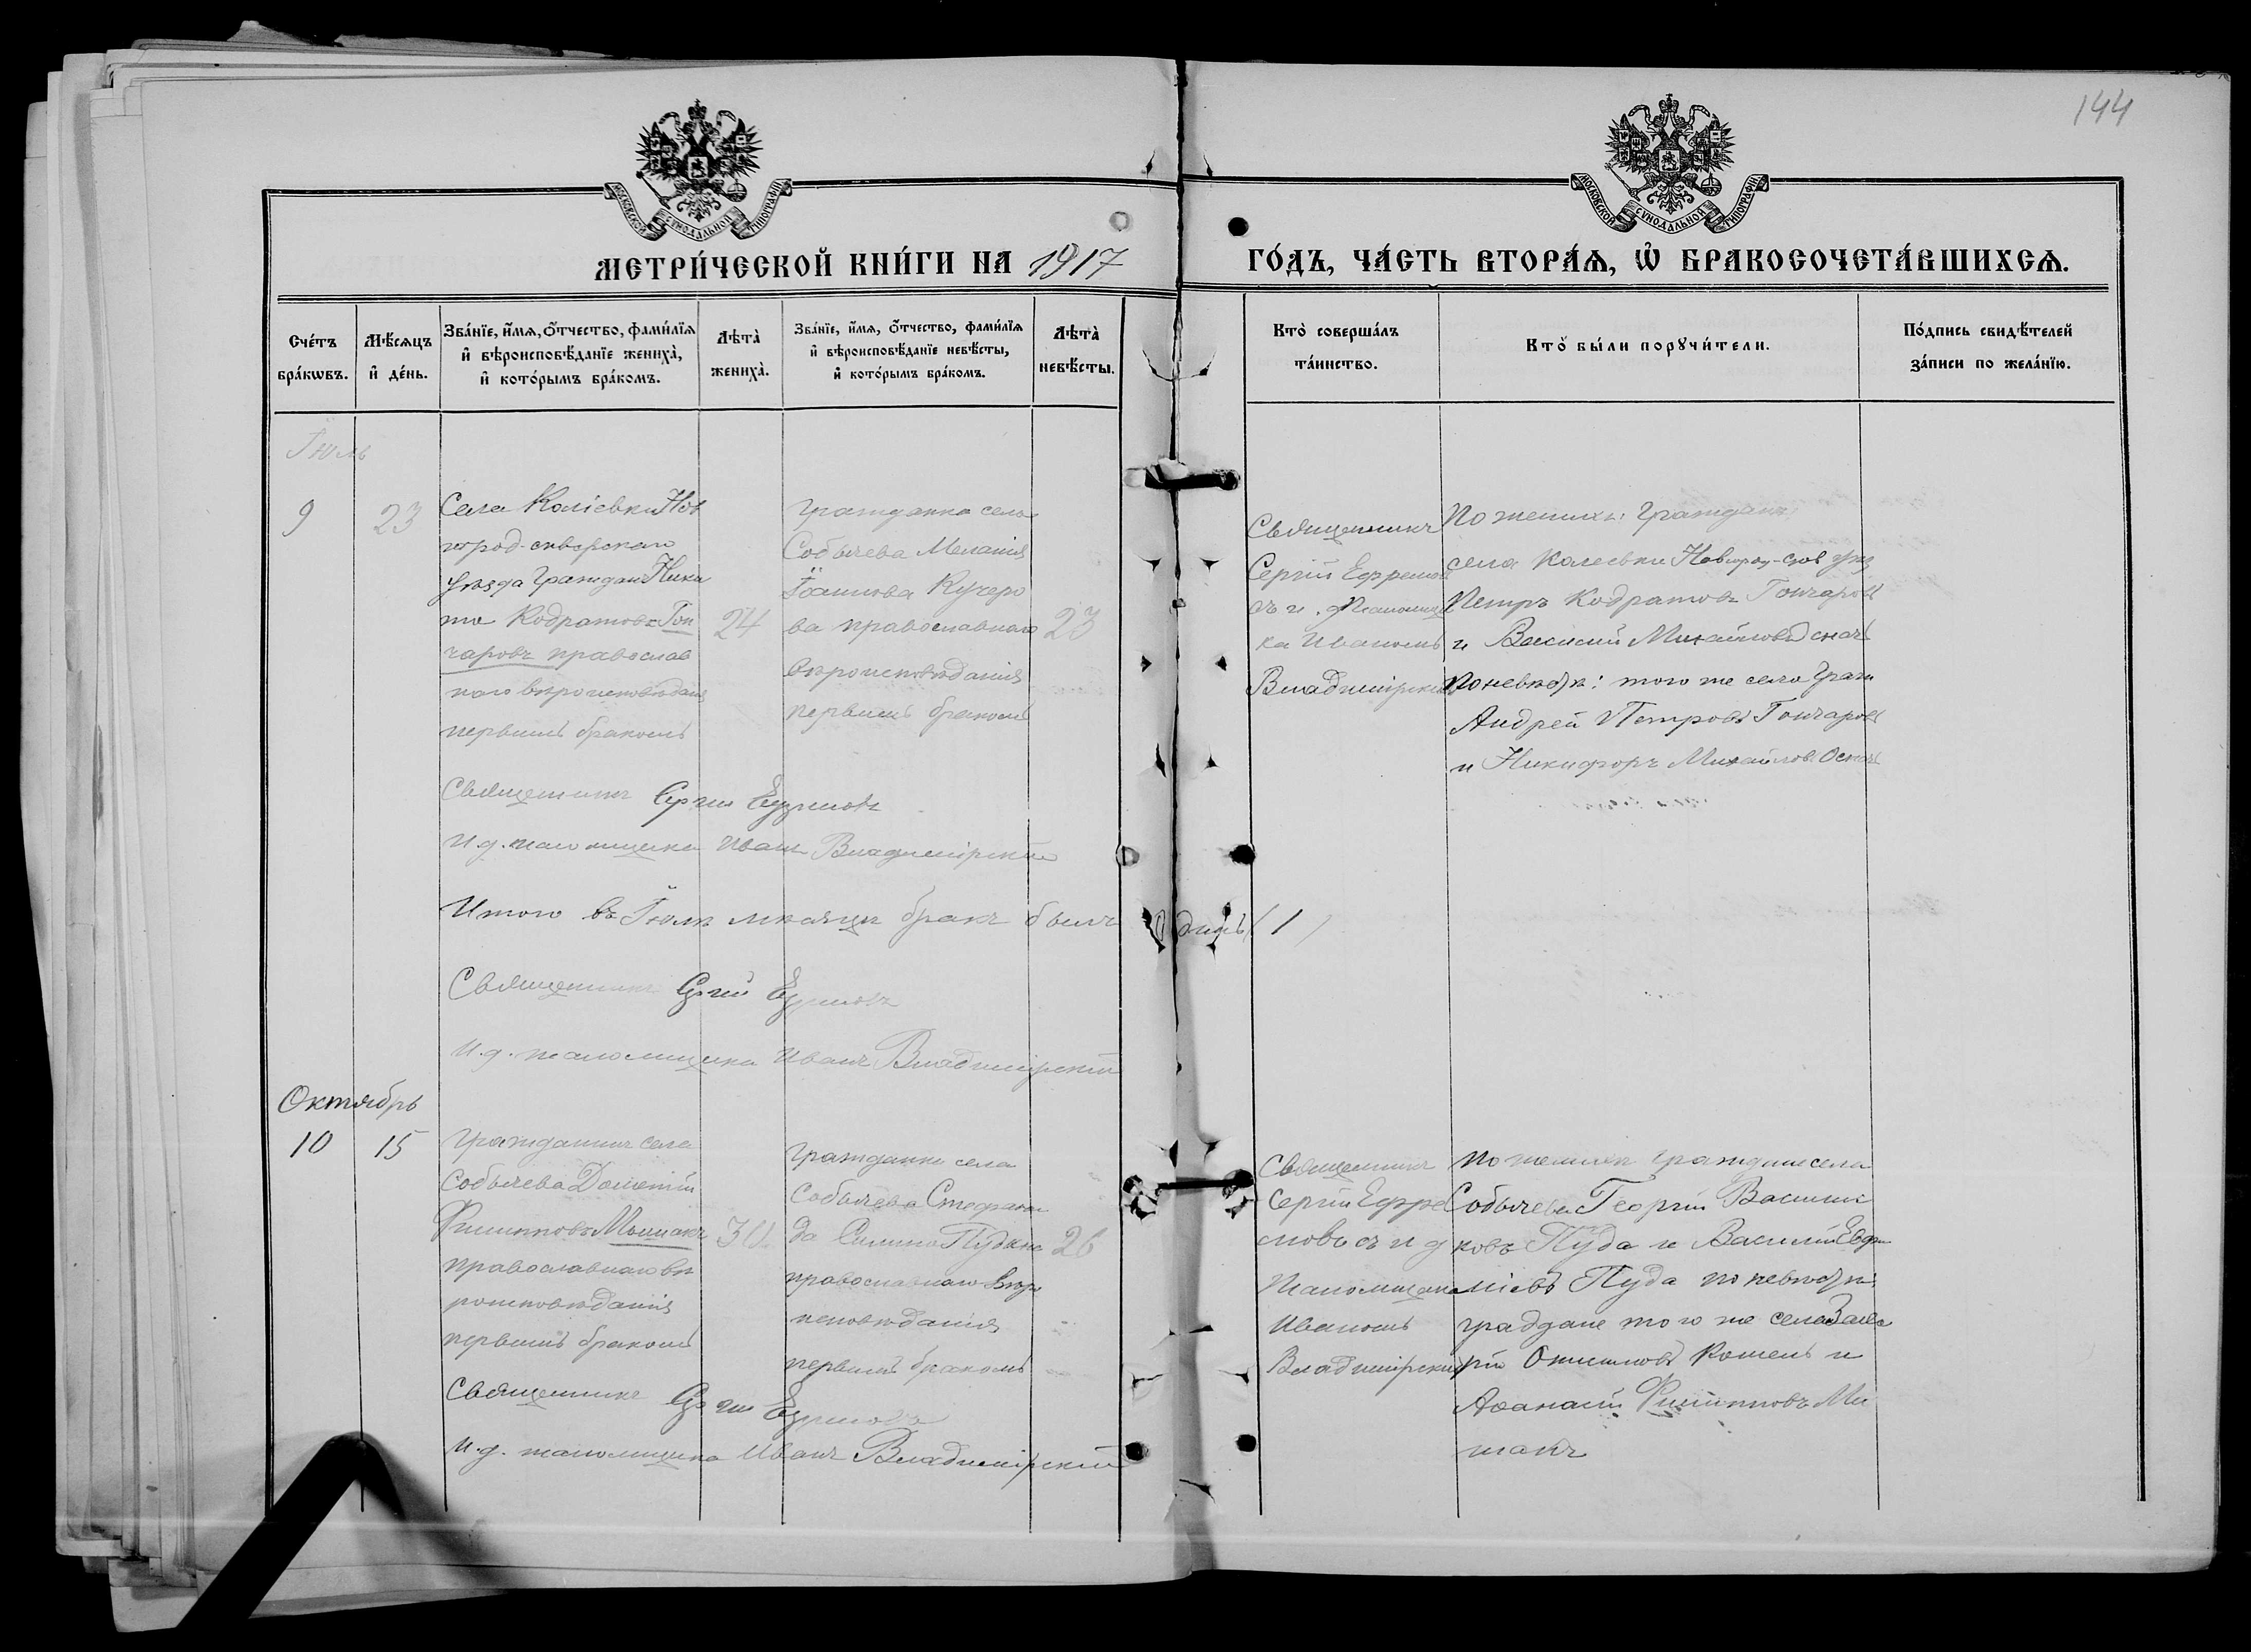 144
МОСКОВСКОЙ СѴНОДАЛЬНОЙ ТИПОГРАФІИ
МОСКОВСКОЙ СѴНОДАЛЬНОЙ ТИПОГРАФІИ
МЕТРИ́ЧЕСКОЙ КНИ́ГИ НА 1917 ГО́ДЪ, ЧА́СТЬ ВТОРА́Ѧ, Ѡ҆ БРАКОСОЧЕТА́ВШИХСѦ.
Сче́тъ бра́кѡвъ.
Мѣ́сѧцъ и҆ де́нь.
Зва́нїе, и҆́мѧ, ѻ҆́тчество, фами́лїѧ
и҆ вѣроисповѣ́данїе жениха̀,
и҆ кото́рымъ бра́комъ.
Лѣта̀ жениха̀.
Зва́нїе, и҆́мѧ, ѻ҆́тчество, фами́лїѧ
и҆ вѣроисповѣ́данїе невѣ́сты,
и҆ кото́рымъ бра́комъ.
Лѣта̀ невѣ́сты.
Кто̀ соверша́лъ
та́инство.
Кто̀ бы́ли порꙋчи́тели.
По́дпись свидѣ́телей
за́писи по жела́нїю.
Іюль
9
23
Села Коліевки Нов
город-северскаго
Уѣзда Граждан Ники
та Кодратовъ Гон
чаровъ православ
наго вѣроисповѣдані
первымъ бракомъ
24
Гражданка села
Собычева Меланія
Іоаннова Кучеро
ва православнаго
вѣроисповѣданія
первымъ бракомъ
23
Священникъ
Сергій Ефремов
съ и. д Псаломщи
ка Иваномъ
Владимірским
По женихѣ: Граждане
села Колеевки Новгород-Сѣв уѣз
Петръ Кодратовъ Гончаровъ
и Василій Михайловъ
По невѣстѣ: того же села Граж
Андрей Петровъ Гончаровъ
и Никифоръ Михайловъ
Священникъ Сергій Ефремовъ
И.д. псаломщика Иванъ Владимірскій
Итого въ Іюлѣ мѣсяцѣ бракъ былъ Одинъ (1)
Священникъ Сергій Ефремовъ
И.д. псаломщика Иванъ Владимірскій
Октябрь
10
15
Гражданинъ села
Собычева Дометій
Филипповъ Мышакъ
православнаго вѣ
роисповѣданія
первымъ бракомъ
30
Гражданка села
Собычева Стефани
да Симино Пудина
православнаго вѣро
исповѣданія
первымъ бракомъ
26
Священникъ
Сергій Ефре
мовъ съ и д
Псаломщика
Иваномъ
Владимірским
По женихѣ Граждане села
Собычева Георгій Василис
ковъ Пуда и Василій Евфи
міевъ Пуда по невѣстѣ:
граждане того же села Вале
рій Кошель и
Аѳанасій Филипповъ Ми
шакъ
Священникъ Сергій Ефремовъ
И.д. псаломщика Иванъ Владимірскій